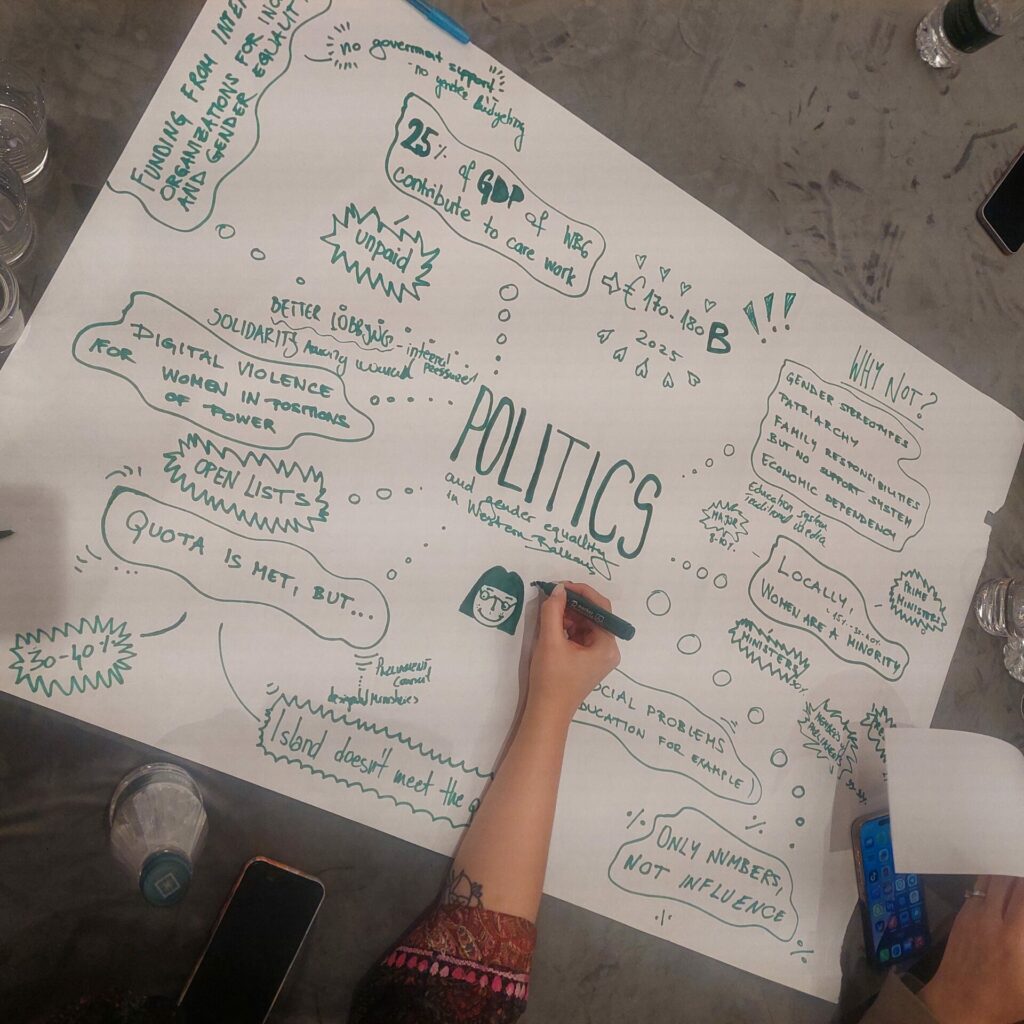 FUNDING FROM INTER
ORGANIZATIONS FOR INC
AND GENDER EQUALIT
no goverment support
no gender budgeting
25% of GDP of WB6
contribute to care work
unpaid
€ 170-180 B
2025
!!!
BETTER LOBBYING - internal
pressure
SOLIDARITY among women
DIGITAL VIOLENCE
FOR WOMEN IN POSITIONS
OF POWER
OPEN LISTS
QUOTA IS MET, BUT...
30-40%
Parliament
Island doesn't meet the Q
POLITICS
and gender equality
in Western Balkans
WHY NOT?
GENDER STEREOTYPES
PATRIARCHY
FAMILY RESPONSIBILITIES
BUT NO SUPPORT SYSTEM
ECONOMIC DEPENDENCY
Education system
Traditional media
MAJOR
8-10%
LOCALLY,
WOMEN ARE A MINORITY
PRIME
MINISTERS
MINISTERS
MEMBERS OF
PARLIAMENTS
OCIAL PROBLEMS
DUCATION FOR EXAMPLE)
ONLY NUMBERS,
NOT INFLUENCE